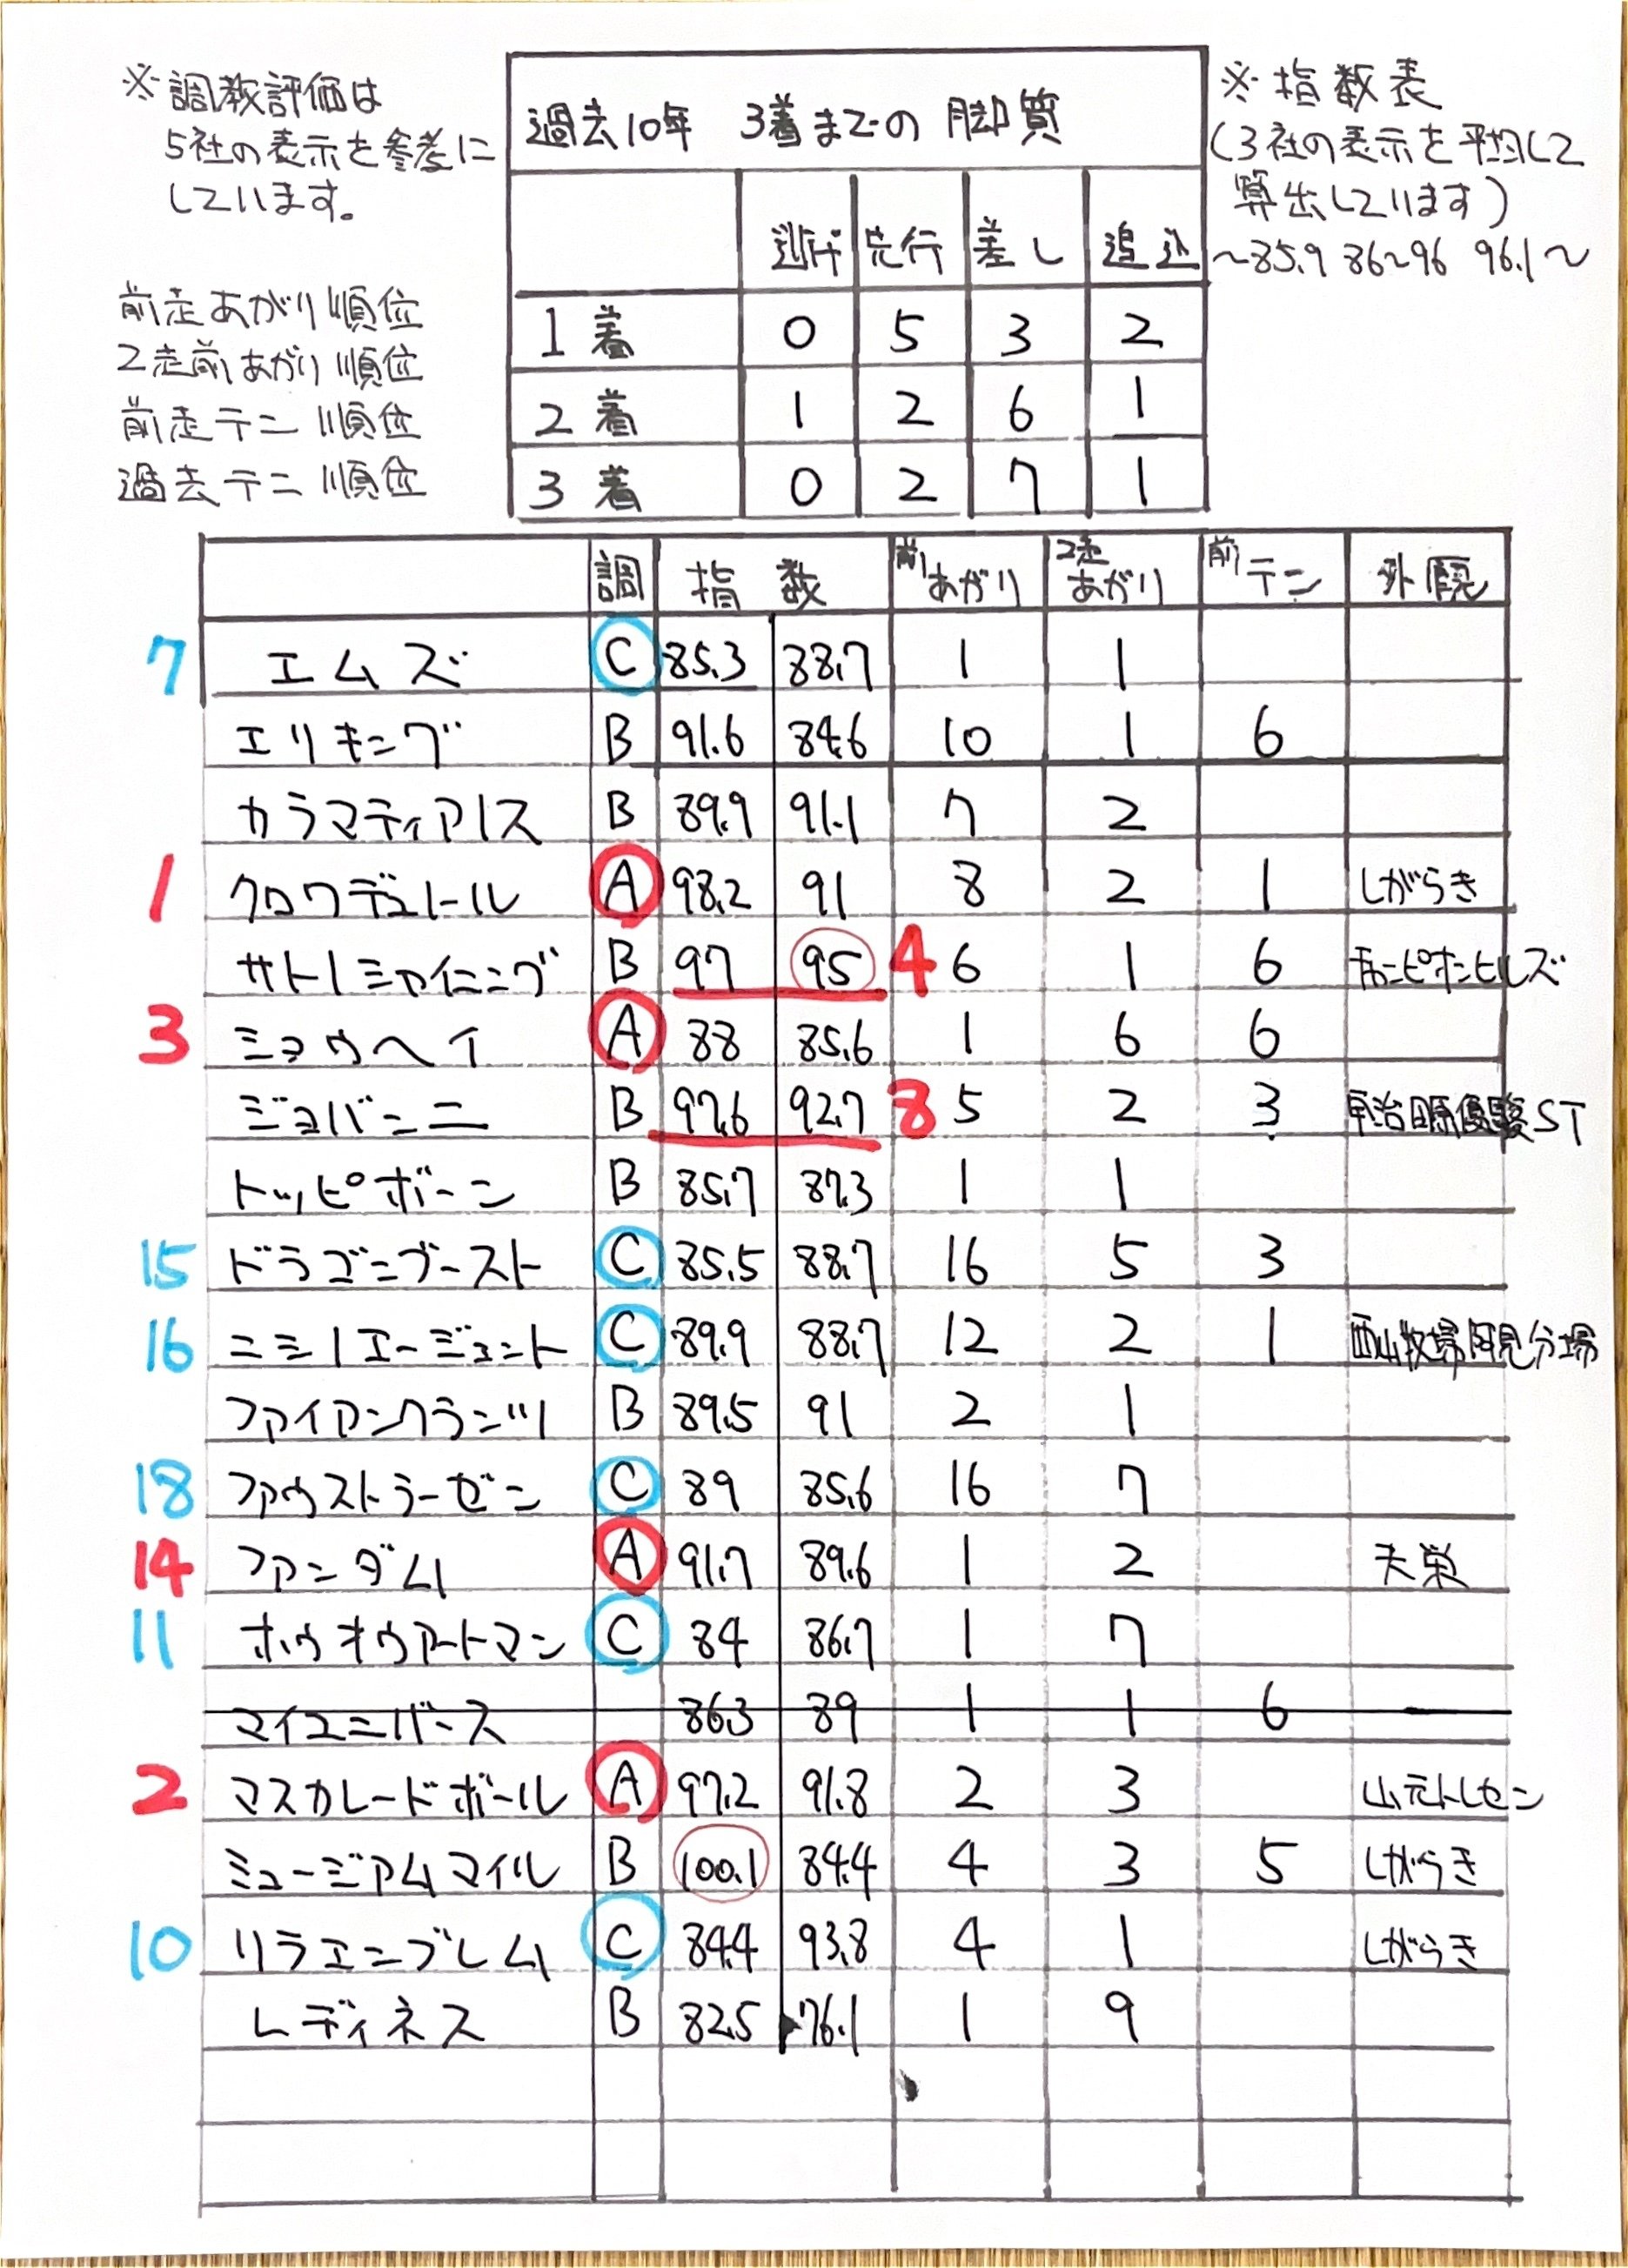 ※調教評価は
5社の表示を参考に
しています。
前走あがり順位
2走前あがり順位
前走テン順位
過去テン順位
過去10年 3着までの脚質
逃げ 先行 差し 追込
1着 0 5 3 2
2着 1 2 6 1
3着 0 2 7 1
※指数表
(3社の表示を平均して
算出しています)
〜85.9 86〜96 96.1〜
調 指数 前あがり 2走あがり 前テン 外厩
7 エムズ C 85.3 88.7 1 1
エリキング B 91.6 84.6 10 1 6
カラマティアノス B 89.9 91.1 7 2
1 クロワデュノール A 98.2 91 8 2 1 しがらき
サトノシャイニング B 97 95 4 6 1 6 チャンピオンヒルズ
3 ショウヘイ A 88 85.6 1 6 6
ジョバンニ B 97.6 92.7 8 5 2 3 宇治田原優駿ST
トッピボーン B 85.7 87.3 1 1
15 ドラゴンブースト C 85.5 88.7 16 5 3
16 ニシノエージェント C 89.9 88.7 12 2 1 西山牧場阿見分場
ファイアンクランツ B 89.5 91 2 1
18 ファウストラーゼン C 89 85.6 16 7
14 ファンダム A 91.7 89.6 1 2 天栄
11 ホウオウアートマン C 84 86.7 1 7
マイユニバース 86.3 89 1 1 6
2 マスカレードボール A 97.2 91.8 2 3 山元トレセン
ミュージアムマイル B 100.1 84.4 4 3 5 しがらき
10 リラエンブレム C 84.4 93.8 4 1 しがらき
レディネス B 82.5 76.1 1 9